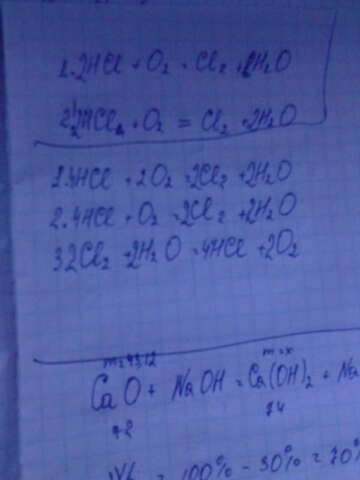 1. 2HCl + O2 = Cl2 + 2H2O
2. 2HCl + O2 = Cl2 + 2H2O
1. 4HCl + 2O2 = 2Cl2 + 2H2O
2. 4HCl + O2 = 2Cl2 + 2H2O
3 2Cl2 + 2H2O = 4HCl + 2O2
m=x
CaO + NaOH = Ca(OH)2 + Na
74
= 100% - 30% = 70%